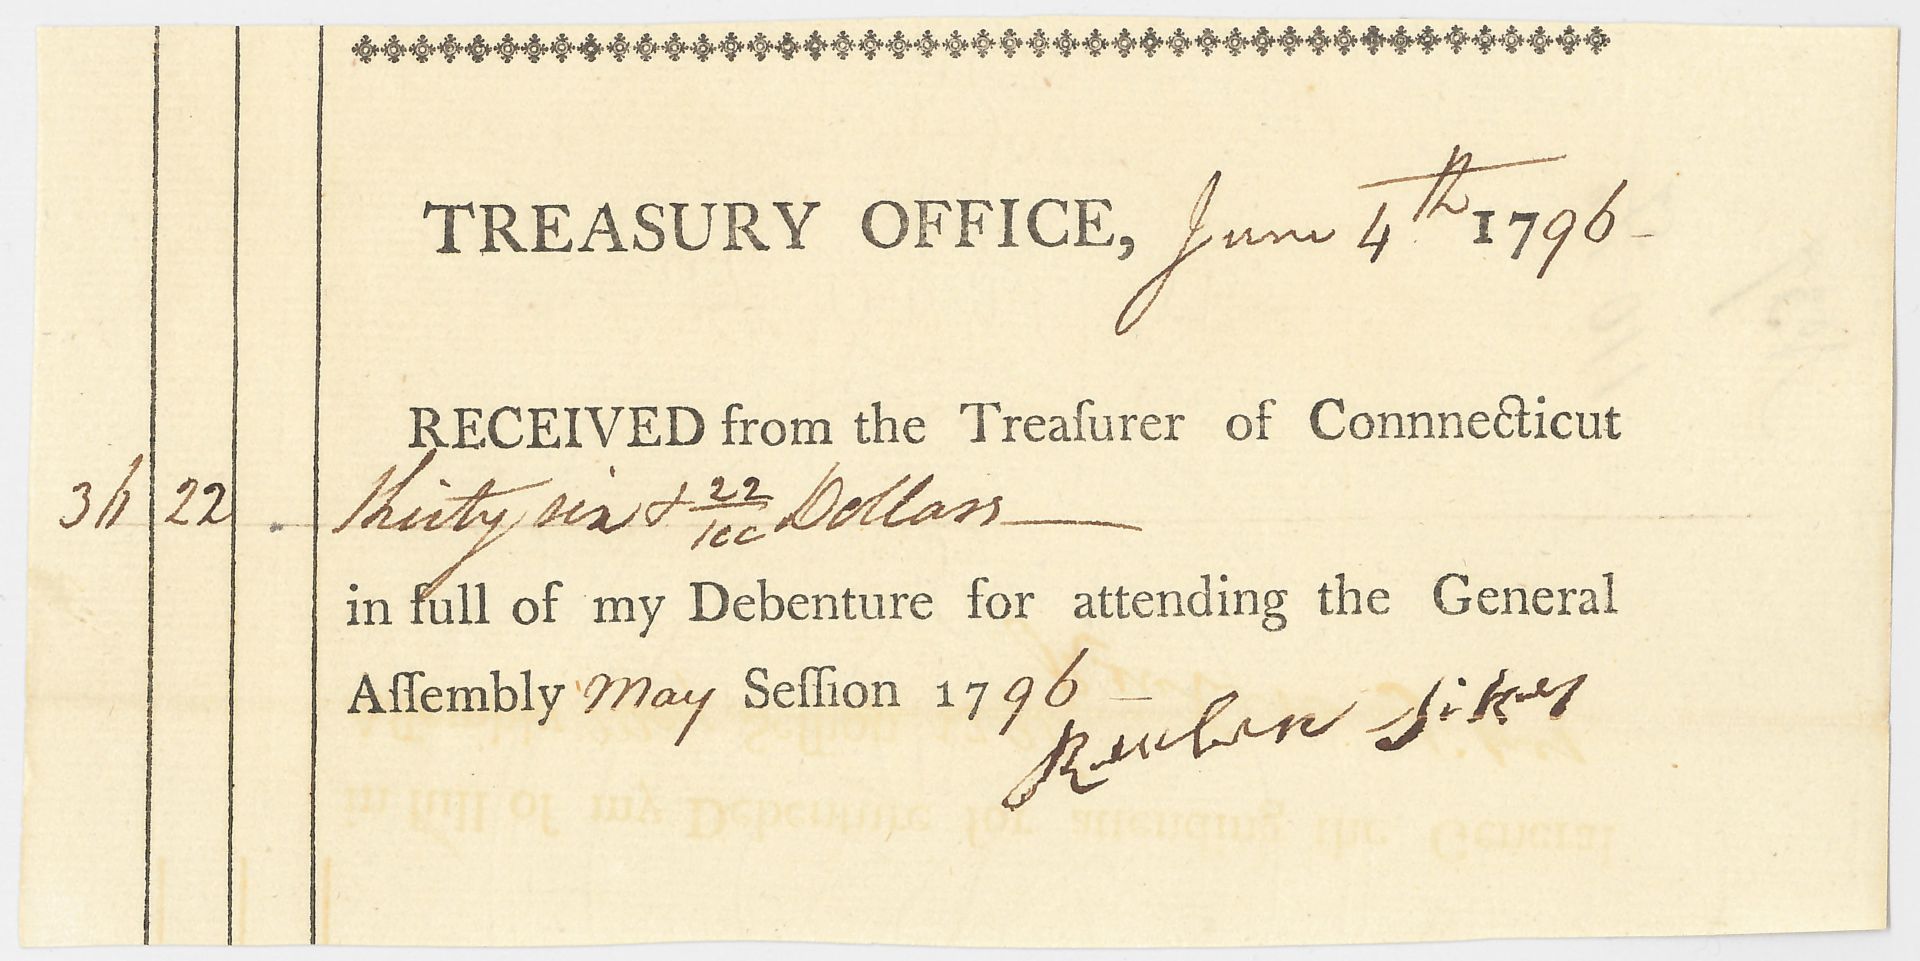 TREASURY OFFICE, June 4th 1796
RECEIVED from the Treaſurer of Connnecticut
36 22 thirty six & 22/100 Dollars
in full of my Debenture for attending the General
Aſſembly May Seſſion 1796
Reuben Sikes